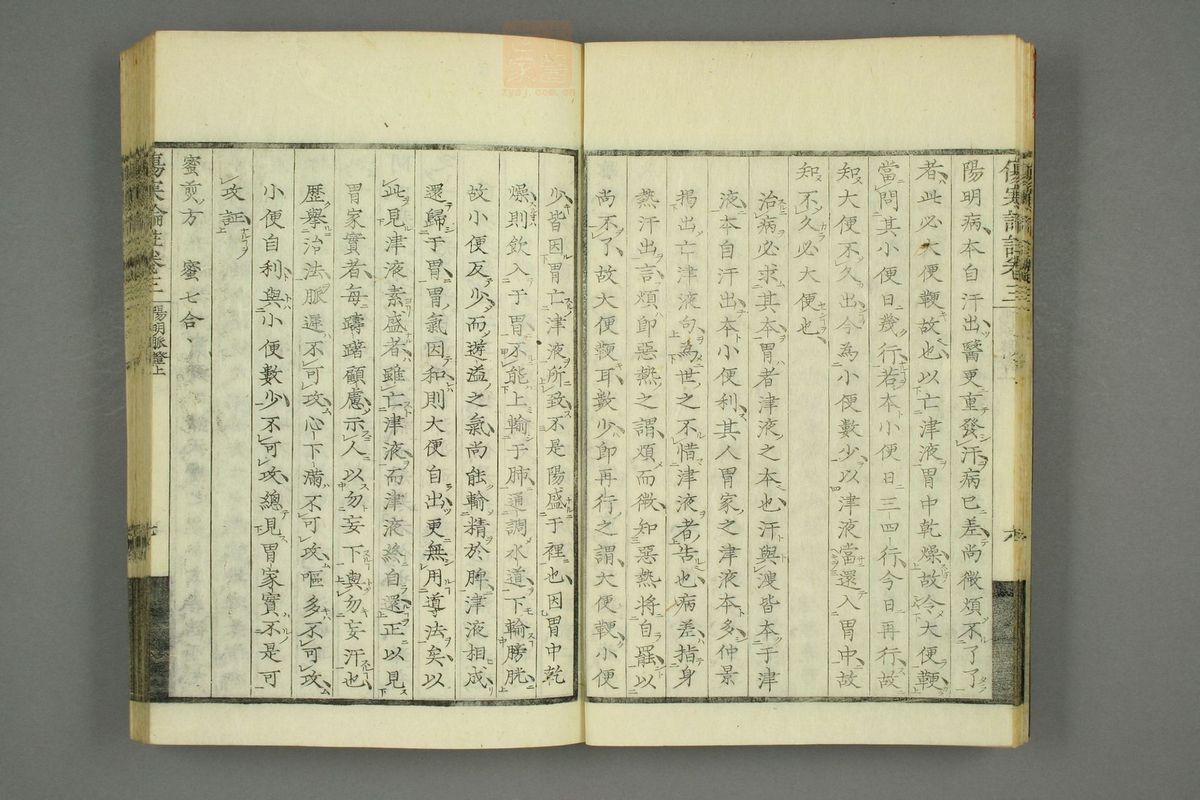 陽明病本自汗出醫更重發汗病已差尚微煩不了了
者此必大便鞕故也以亡津液胃中乾燥故令大便鞕
當問其小便日幾行若本小便日三四行今日再行故
知大便不久出今為小便數少以津液當還入胃中故
知不久必大便也
治病必求其本胃者津液之本也汗與溲皆本于津
液本自汗出本小便利其人胃家之津液本多仲景
揭出亡津液句為世之不惜津液者告也病差指身
熱汗出言煩卽惡熱之謂煩而微知惡熱将自罷以
尚不了故大便鞕耳數少卽再行之謂大便鞕小便
少皆因胃亡津液所致不是陽盛于裡也因胃中乾
燥則飲入于胃不能上輸于肺通調水道下輸膀胱
故小便反少而遊溢之氣尚能輸精於脾津液相成
還歸于胃胃氣因和則大便自出更無用導法矣以
此見津液素盛者雖亡津液而津液終自還正以見
胃家實者每躊躇顧慮示人以勿妄下與勿妄汗也
歷舉治法脈遲不可攻心下滿不可攻嘔多不可攻
小便自利與小便數少不可攻總見胃家實不是可
攻証
蜜煎方　蜜七合
傷寒論註卷三
陽明脈證上